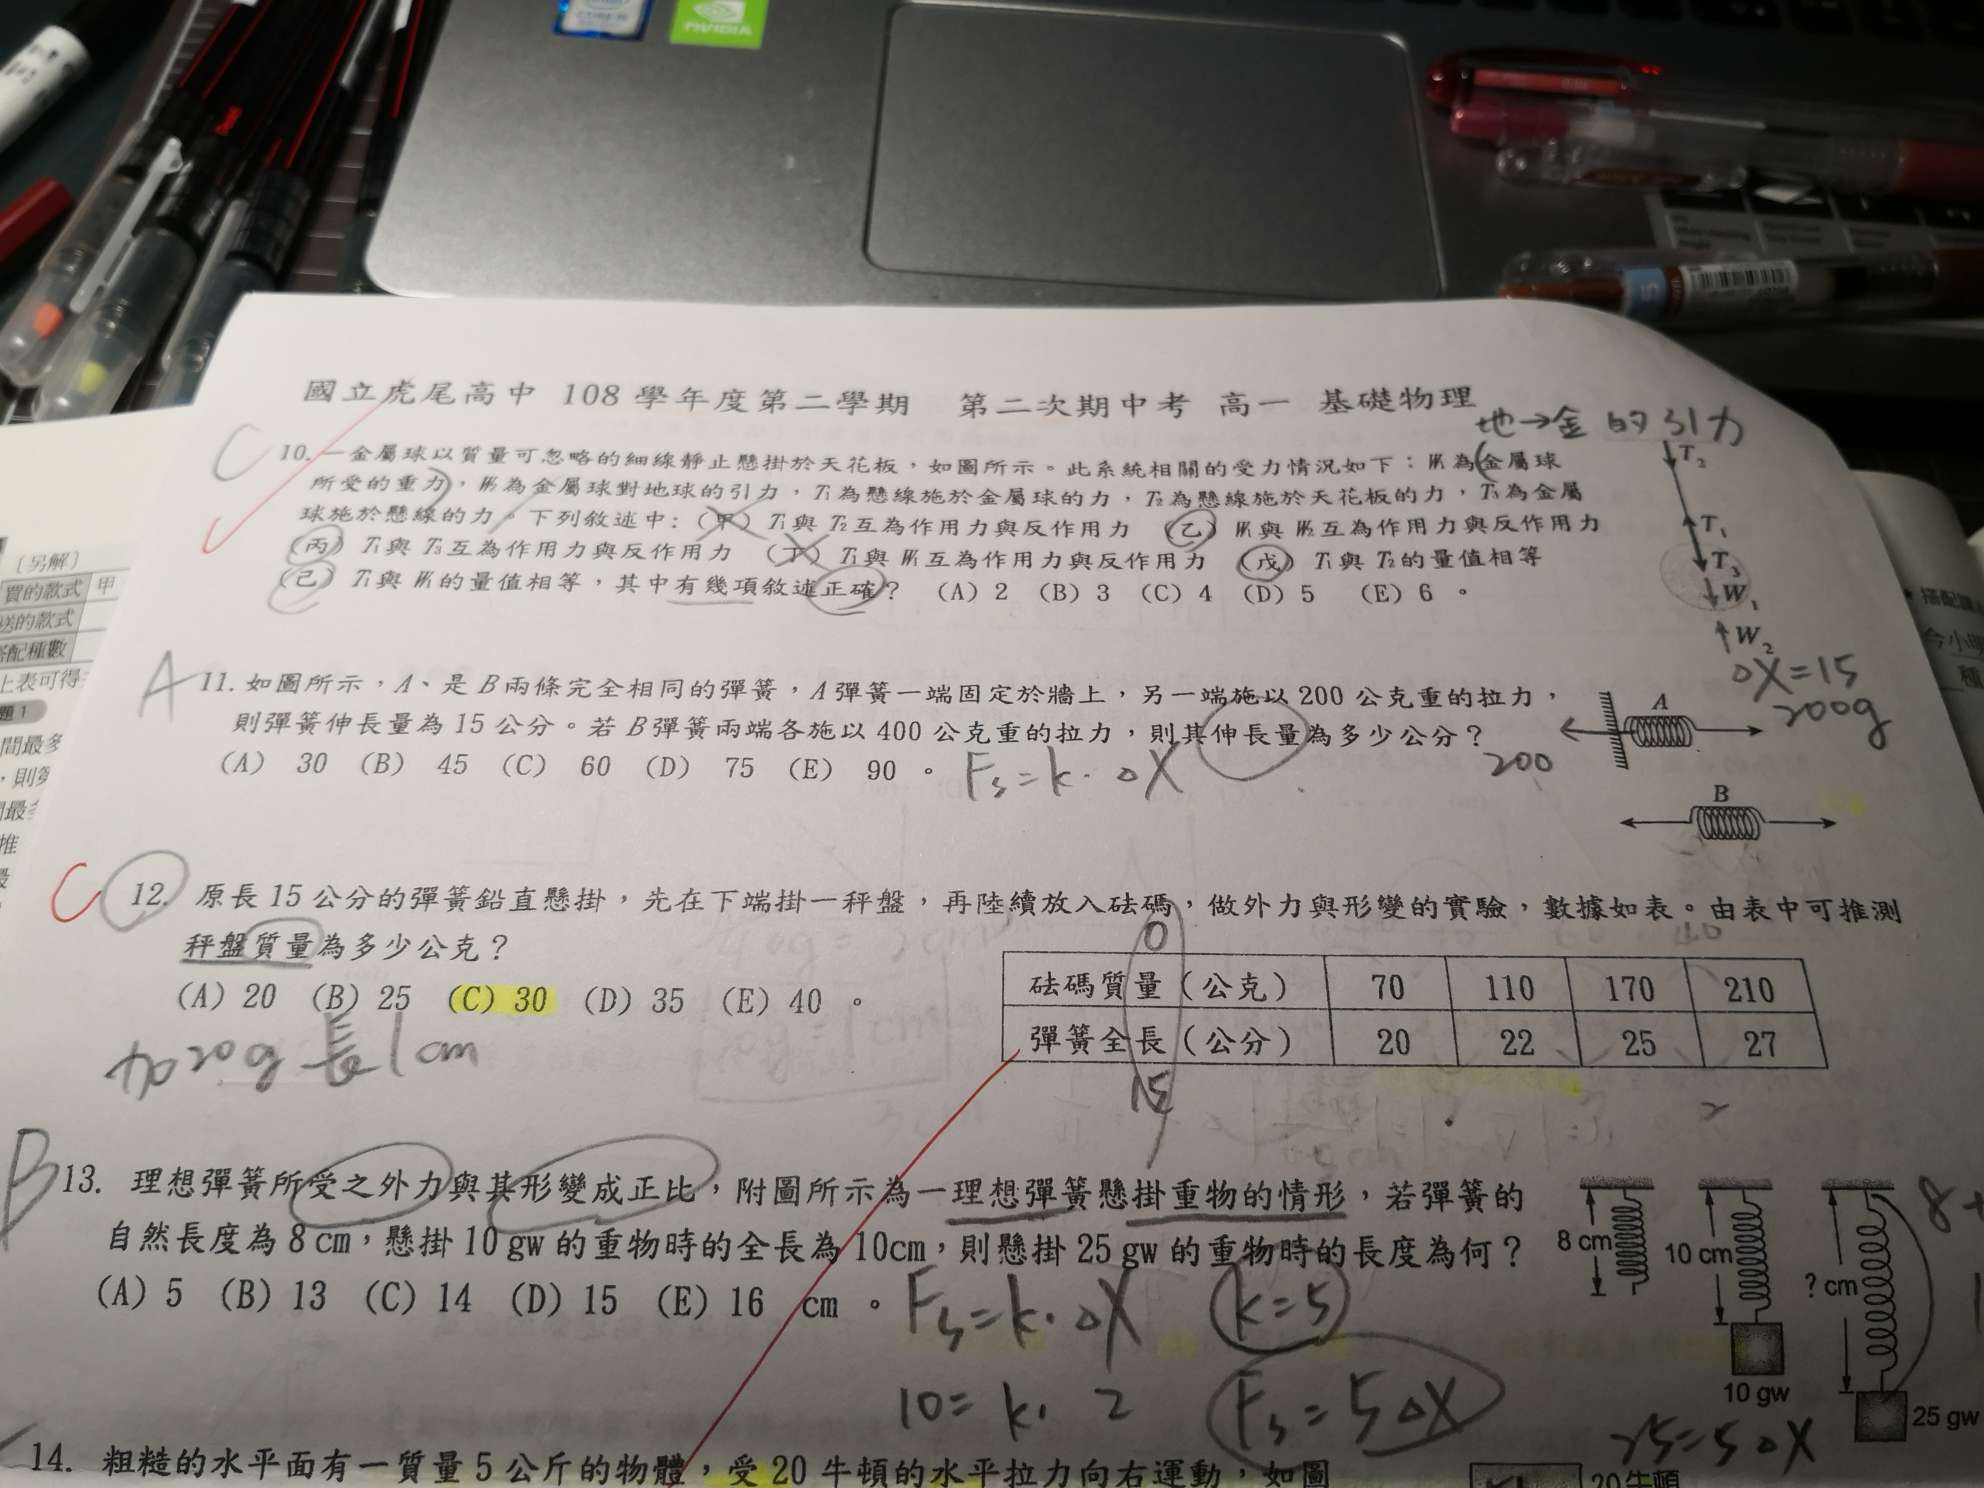 NVIDIA
國立虎尾高中 108 學年度第二學期 第二次期中考 高一 基礎物理
地→金 的引力
C
10. 一金屬球以質量可忽略的細線靜止懸掛於天花板，如圖所示。此系統相關的受力情況如下：W₁為金屬球
所受的重力，W₂為金屬球對地球的引力，T₁為懸線施於金屬球的力，T₂為懸線施於天花板的力，T₃為金屬
球施於懸線的力。下列敘述中：（甲）T₁與 T₂互為作用力與反作用力 （乙）W₁與 W₂互為作用力與反作用力
（丙）T₁與 T₃互為作用力與反作用力 （丁）T₁與 W₁互為作用力與反作用力 （戊）T₁與 T₂的量值相等
（己）T₁與 W₁的量值相等，其中有幾項敘述正確？ (A) 2 (B) 3 (C) 4 (D) 5 (E) 6 。
T₂
T₁
T₃
W₁
W₂
A
11. 如圖所示，A、是 B 兩條完全相同的彈簧，A 彈簧一端固定於牆上，另一端施以 200 公克重的拉力，
則彈簧伸長量為 15 公分。若 B 彈簧兩端各施以 400 公克重的拉力，則其伸長量為多少公分？
(A) 30 (B) 45 (C) 60 (D) 75 (E) 90 。
Fs=k·△X
△X=15
200g
200
A
B
C
12. 原長 15 公分的彈簧鉛直懸掛，先在下端掛一秤盤，再陸續放入砝碼，做外力與形變的實驗，數據如表。由表中可推測
秤盤質量為多少公克？
(A) 20 (B) 25 (C) 30 (D) 35 (E) 40 。
0
砝碼質量（公克） 70 110 170 210
彈簧全長（公分） 20 22 25 27
15
加20g 長1cm
B
13. 理想彈簧所受之外力與其形變成正比，附圖所示為一理想彈簧懸掛重物的情形，若彈簧的
自然長度為 8 cm，懸掛 10 gw 的重物時的全長為 10cm，則懸掛 25 gw 的重物時的長度為何？
(A) 5 (B) 13 (C) 14 (D) 15 (E) 16 cm 。
Fs=k·△X
k=5
10=k·2
Fs=5△X
25=5△X
8 cm
10 cm
? cm
10 gw
25 gw
8+
14. 粗糙的水平面有一質量 5 公斤的物體，受 20 牛頓的水平拉力向右運動，如圖
20 牛頓
〔另解〕
買的款式 甲
送的款式
搭配種數
上表可得